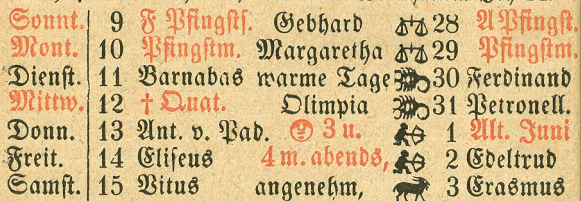 Sonnt. 9 F Pfingsts. Gebhard 28 A Pfingst.
Mont. 10 Pfingstm. Margaretha 29 Pfingstm.
Dienst. 11 Barnabas warme Tage 30 Ferdinand
Mittw. 12 † Quat. Olimpia 31 Petronell.
Donn. 13 Ant. v. Pad. 3 u. 1 Alt. Juni
Freit. 14 Eliseus 4 m. abends, 2 Edeltrud
Samst. 15 Vitus angenehm, 3 Erasmus